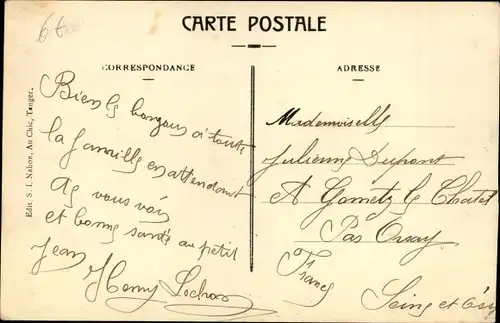 6t
CARTE POSTALE
CORRESPONDANCE
ADRESSE
Edit. S. I. Nahon, Au Chic, Tanger.
Bien le bonjour à toute
la famille en attendant
de vous voir
et bonne santé au petit
Jean
Henry
Mademoiselle
Julienne Dupont
A Gometz le Chatel
Par Orsay
France
Seine et Oise